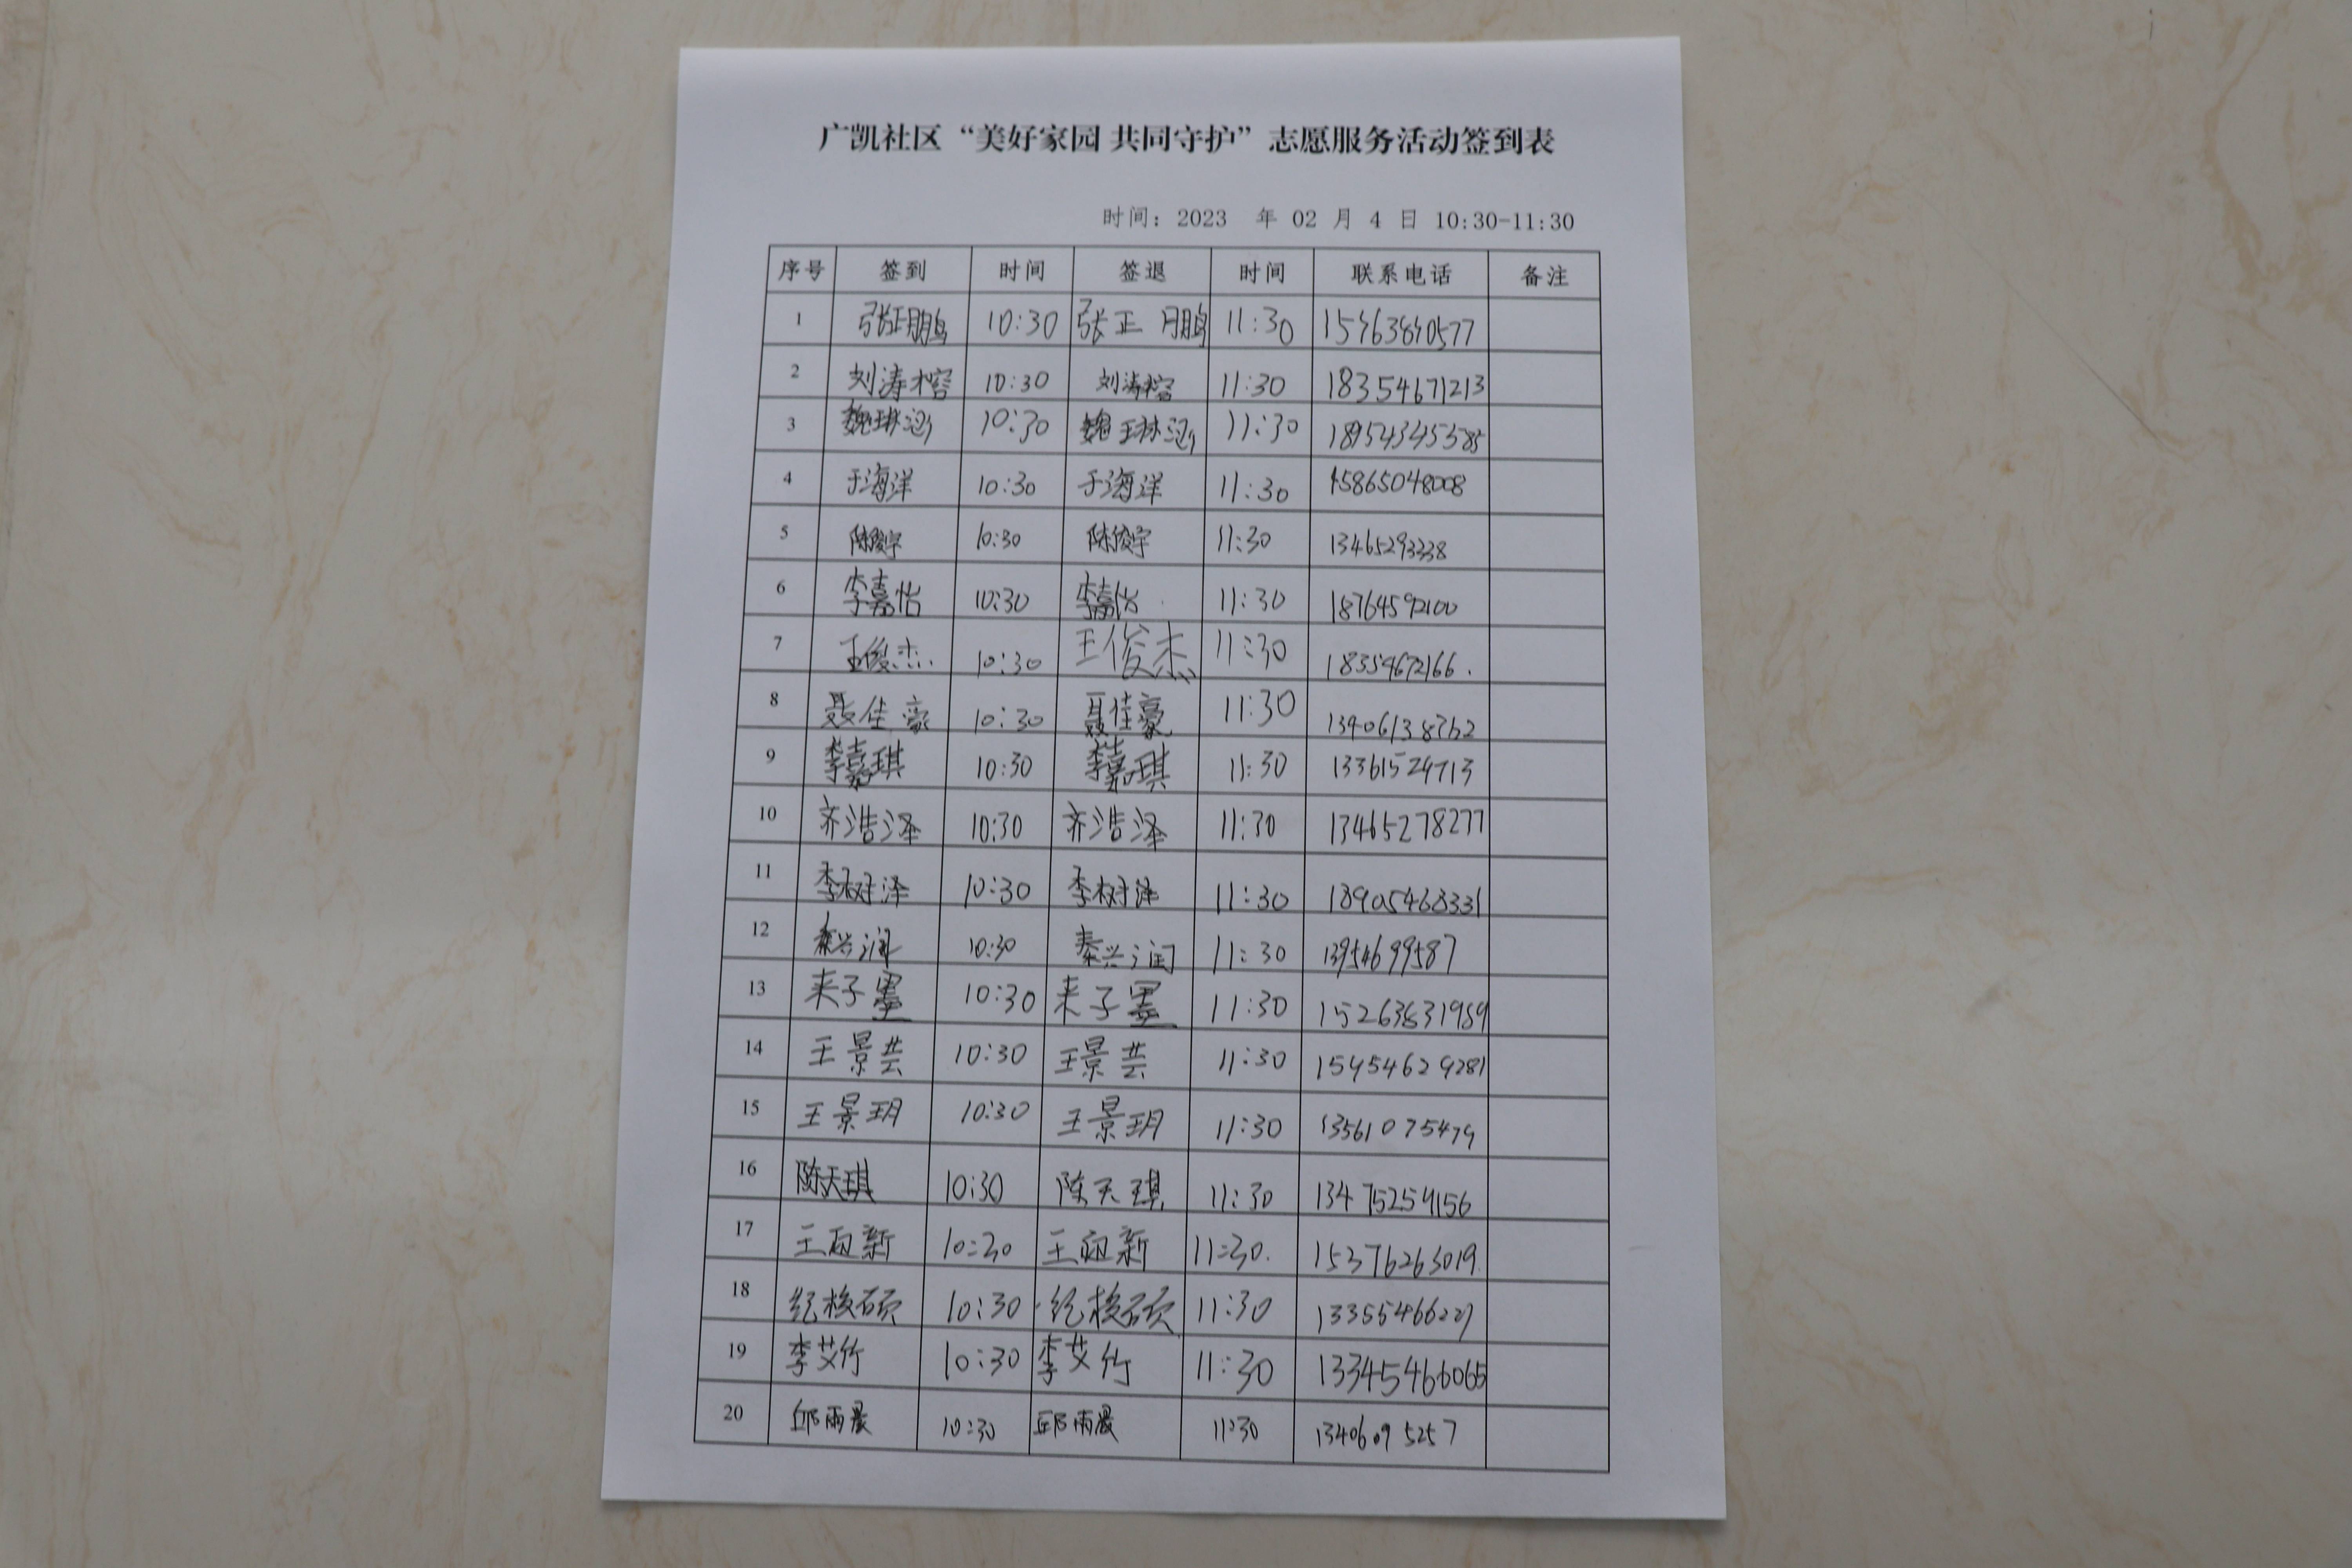 广凯社区“美好家园 共同守护”志愿服务活动签到表
时间：2023 年 02 月 4 日 10:30-11:30
序号 签到 时间 签退 时间 联系电话 备注
1 张正鹏 10:30 张正鹏 11:30
2 刘涛榕 10:30 刘涛榕 11:30 18354671213
3 魏琳涵 10:30 魏琳涵 11:30
4 于海洋 10:30 于海洋 11:30 15865048008
5 陈俊宇 10:30 陈俊宇 11:30 13465293338
6 李嘉怡 10:30 李嘉怡 11:30 18764592100
7 王俊杰 10:30 王俊杰 11:30 18354672166
8 聂佳豪 10:30 聂佳豪 11:30 13406138762
9 李嘉琪 10:30 李嘉琪 11:30 13361524713
10 齐浩泽 10:30 齐浩泽 11:30 13465278277
11 李树泽 10:30 李树泽 11:30 18905468331
12 秦兴润 10:30 秦兴润 11:30 13954699587
13 来子墨 10:30 来子墨 11:30 15263831989
14 王景芸 10:30 王景芸 11:30 15454629281
15 王景玥 10:30 王景玥 11:30 13561075479
16 陈天琪 10:30 陈天琪 11:30 13475254156
17 10:30 11:30. 15376263019
18 纪梭硕 10:30 纪梭硕 11:30 13355466227
19 李艾竹 10:30 李艾竹 11:30 13345466065
20 邱雨晨 10:30 邱雨晨 11:30 13406095257